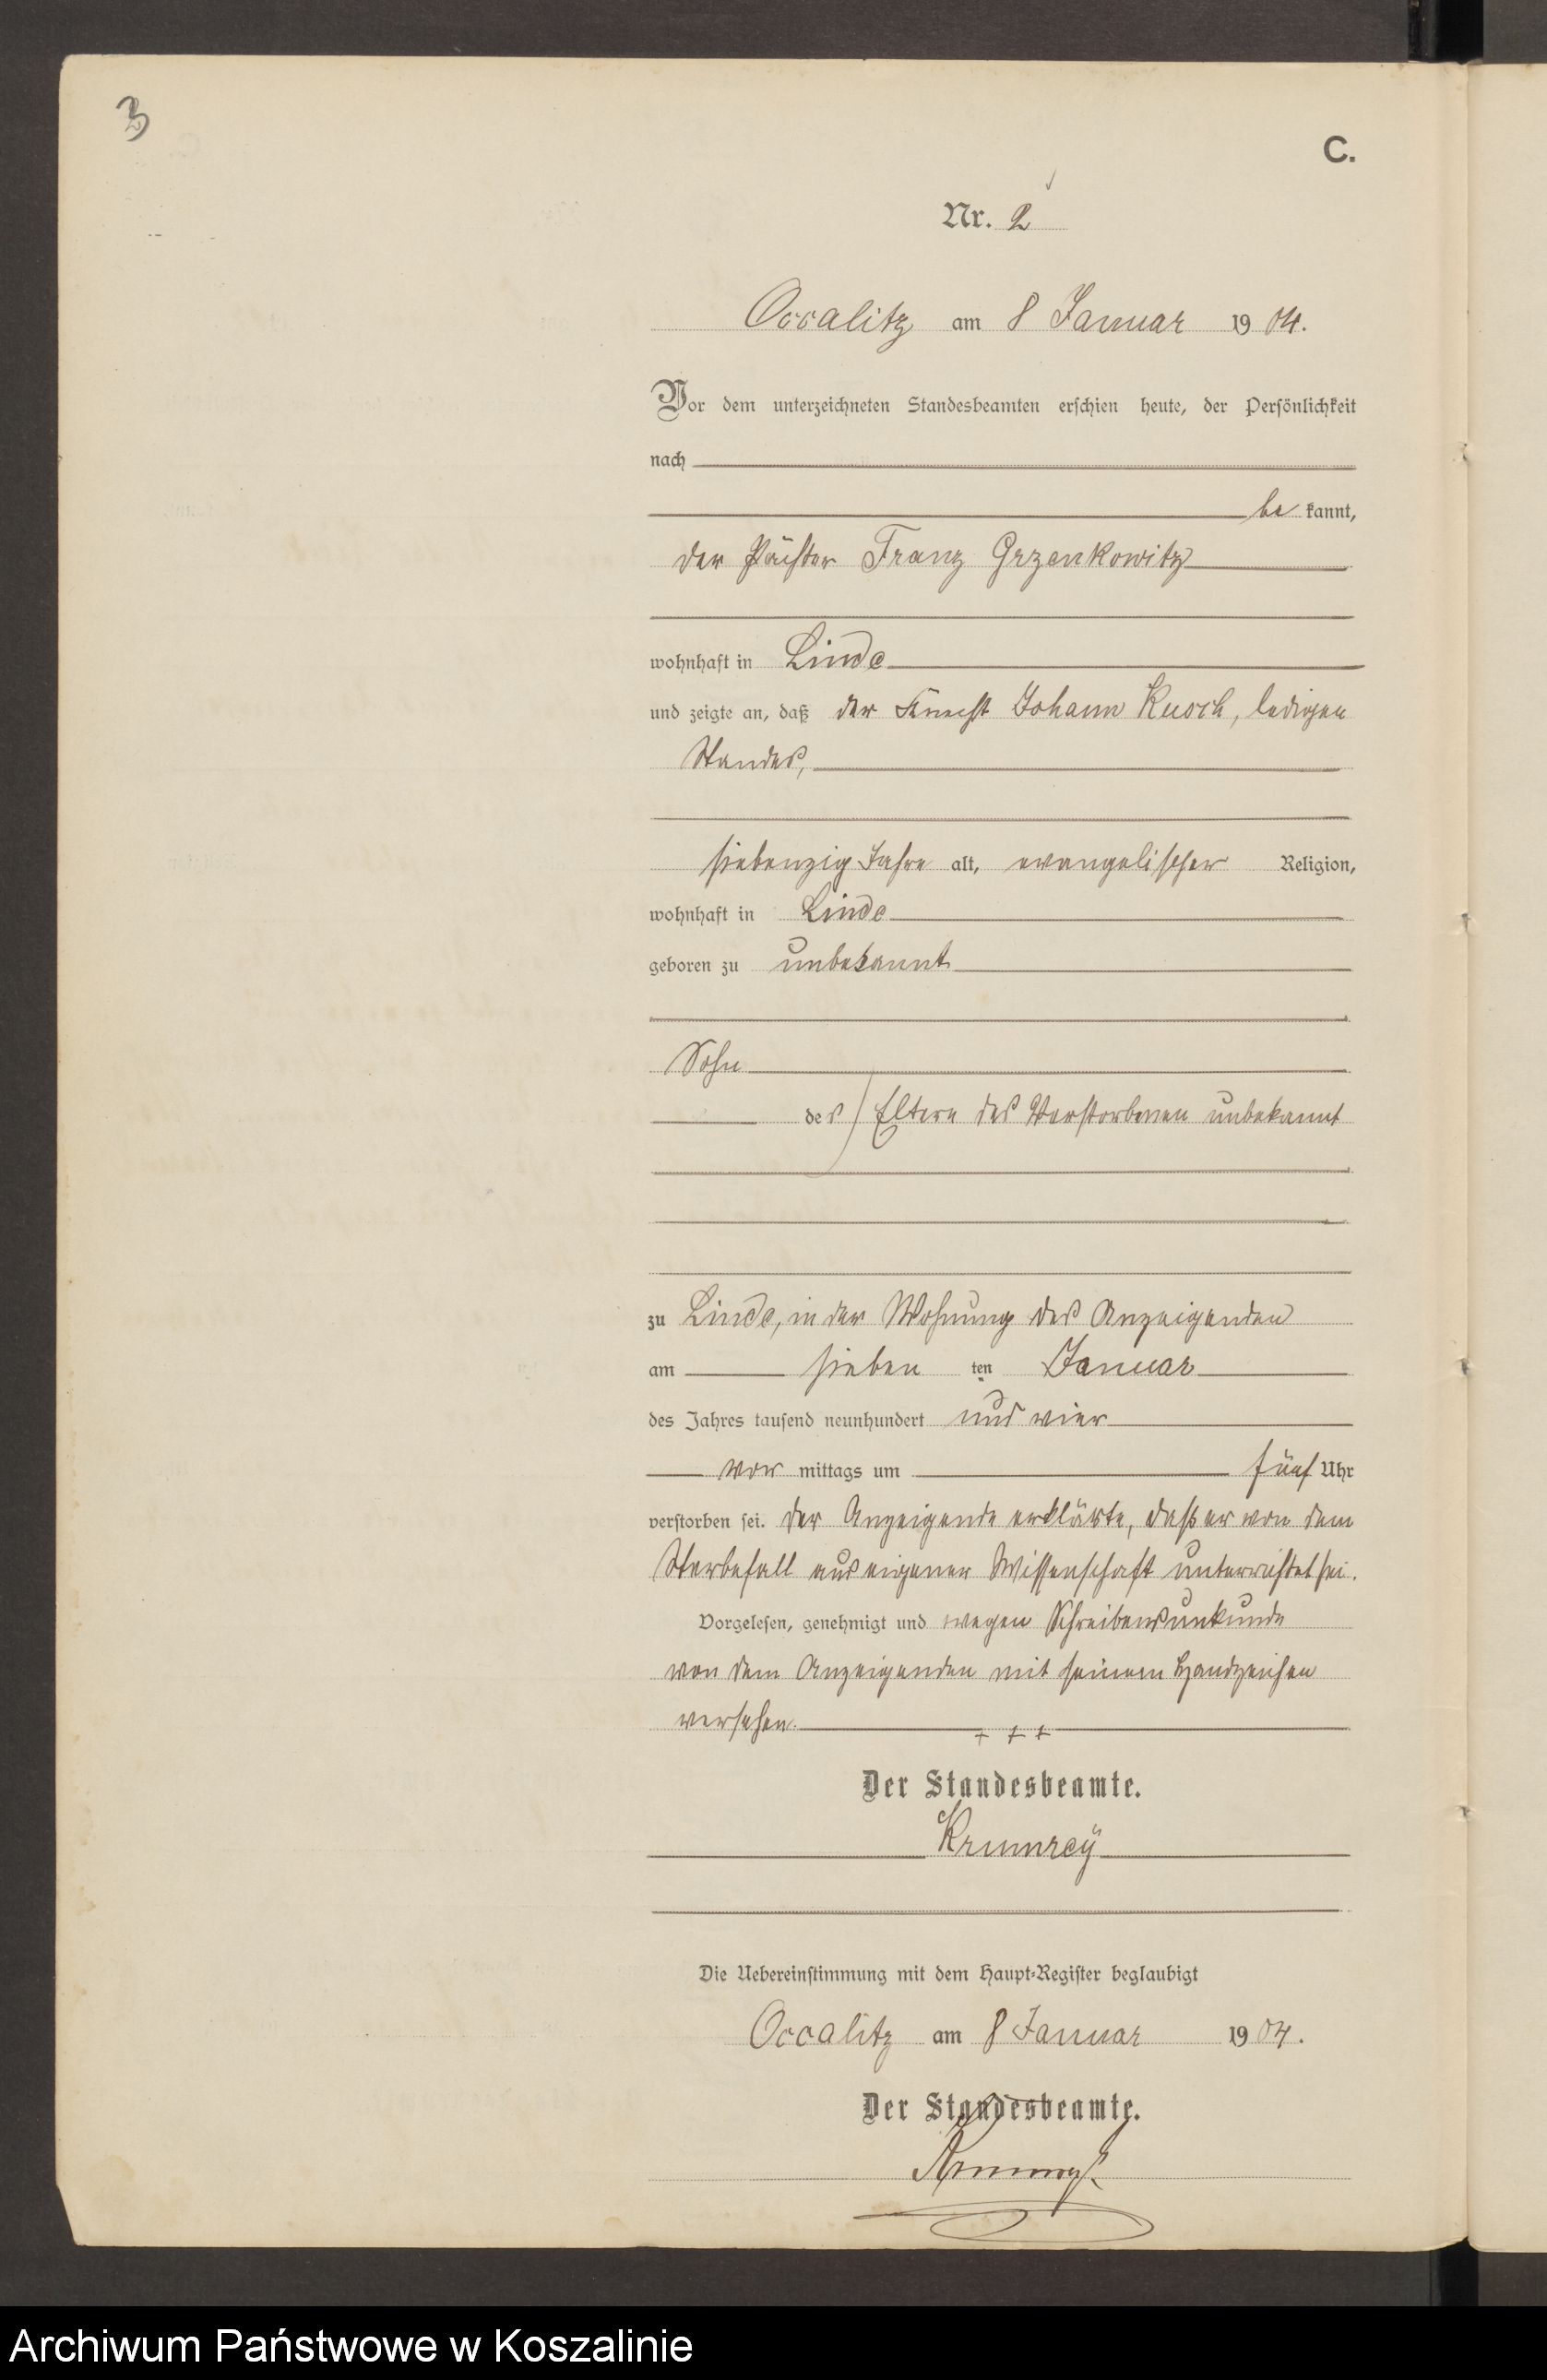 3
C.
Nr. 2
Occalitz am 8 Januar 1904.
Vor dem unterzeichneten Standesbeamten erschien heute, der Persönlichkeit
nach
be kannt,
der Pächter Franz Grzenkowitz
wohnhaft in Linde
und zeigte an, daß der Knecht Johann Kusch, ledigen
Standes,
siebenzig Jahre alt, evangelischer Religion,
wohnhaft in Linde
geboren zu unbekannt
Sohn
des) Eltern des Verstorbenen unbekannt
zu Linde, in der Wohnung des Anzeigenden
am sieben ten Januar
des Jahres tausend neunhundert und vier
vor mittags um fünf Uhr
verstorben sei. Der Anzeigende erklärte, daß er von dem
Sterbefall aus eigener Wissenschaft unterrichtet sei.
Vorgelesen, genehmigt und wegen Schreibensunkunde
von dem Anzeigenden mit seinem Handzeichen
versehen. + + +
Der Standesbeamte.
Krumreÿ
Die Uebereinstimmung mit dem Haupt-Register beglaubigt
Occalitz am 8 Januar 1904.
Der Standesbeamte.
Krumrey
Archiwum Państwowe w Koszalinie